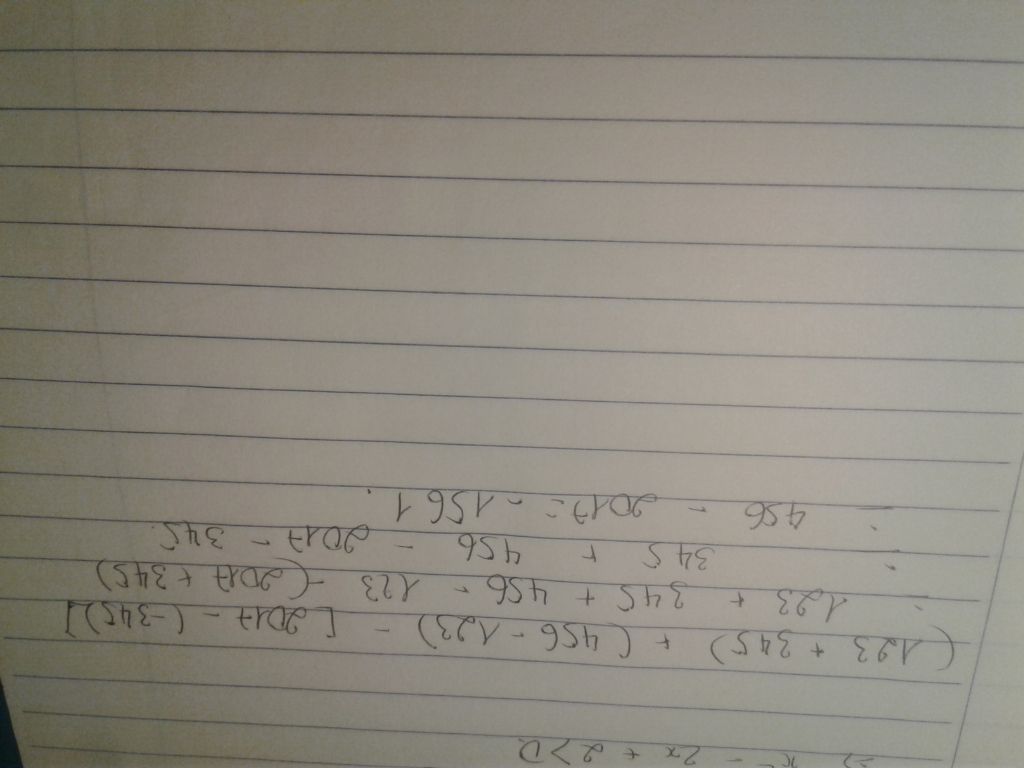 => x² - 2x + 2 > 0
(123 + 345) + (456 - 123) - [2017 - (-345)]
= 123 + 345 + 456 - 123 - (2017 + 345)
= 345 + 456 - 2017 - 345.
= 456 - 2017 = -1561.